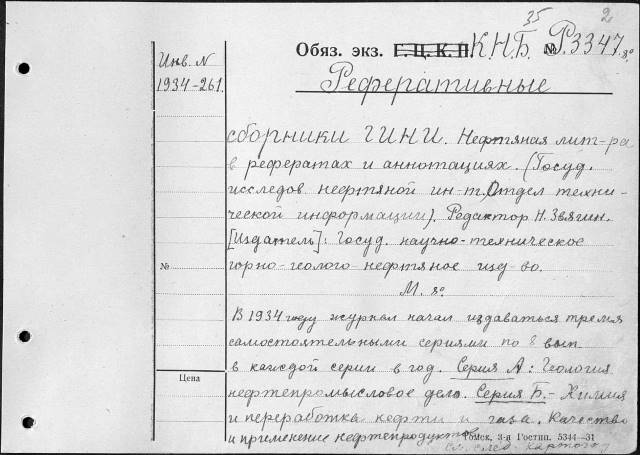 35 2
Инв. N Обяз. экз. Г.Ц.К.П. КНБ. № Р.3347. 8°
1934-261. Реферативные
сборники ГИНИ. Нефтяная лит-ра
в рефератах и аннотациях. (Госуд.
исследов нефтяной ин-т. Отдел техни-
ческой информации). Редактор Н. Звягин.
[Издатель]: Госуд. научно-техническое
№ горно-геолого-нефтяное изд-во.
М. 8°.
В 1934 году журнал начал издаваться тремя
самостоятельными сериями по 8 вып
в каждой серии в год. Серия А: Геология
Цена нефтепромысловое дело. Серия Б. - Химия
и переработка нефти и газа. Качество
и применение нефтепродуктов
Томск, 3-я Гостип. 5344—31
см. след. карточку